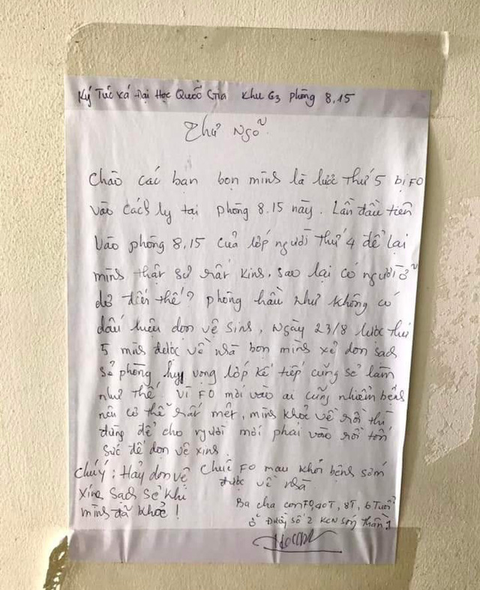 Ký Túc xá Đại Học Quốc Gia Khu G3 phòng 8.15
Thư Ngỏ
Chào các bạn bọn mình là lước thứ 5 bị F0
vào cách ly tại phòng 8.15 này. Lần đầu tiên
vào phòng 8.15 của lớp người thứ 4 để lại
mình thật sự rất kinh, sao lại có người ở
dơ đến thế? phòng hầu như không có
dấu hiệu dọn vệ sinh. Ngày 23/8 lước thứ
5 mình được về nhà bọn mình sẻ dọn sạch
sẻ phòng hy vọng lớp kế tiếp cũng sẻ làm
như thế. Vì F0 mới vào ai cũng nhiễm bệnh
nên cơ thể rất mệt, mình khoẻ về rồi thì
đừng để cho người mới phải vào rồi tốn
sức để dọn vệ xinh.
Chúý: Hãy dọn vệ
xinh sạch sẻ khi
mình đã khoẻ!
Chúc F0 mau khỏi bệnh sớm
được về nhà
Ba cha con F0, 40T, 8T, 6 Tuổi
ở Đường số 2 KCN Sóng Thần 1